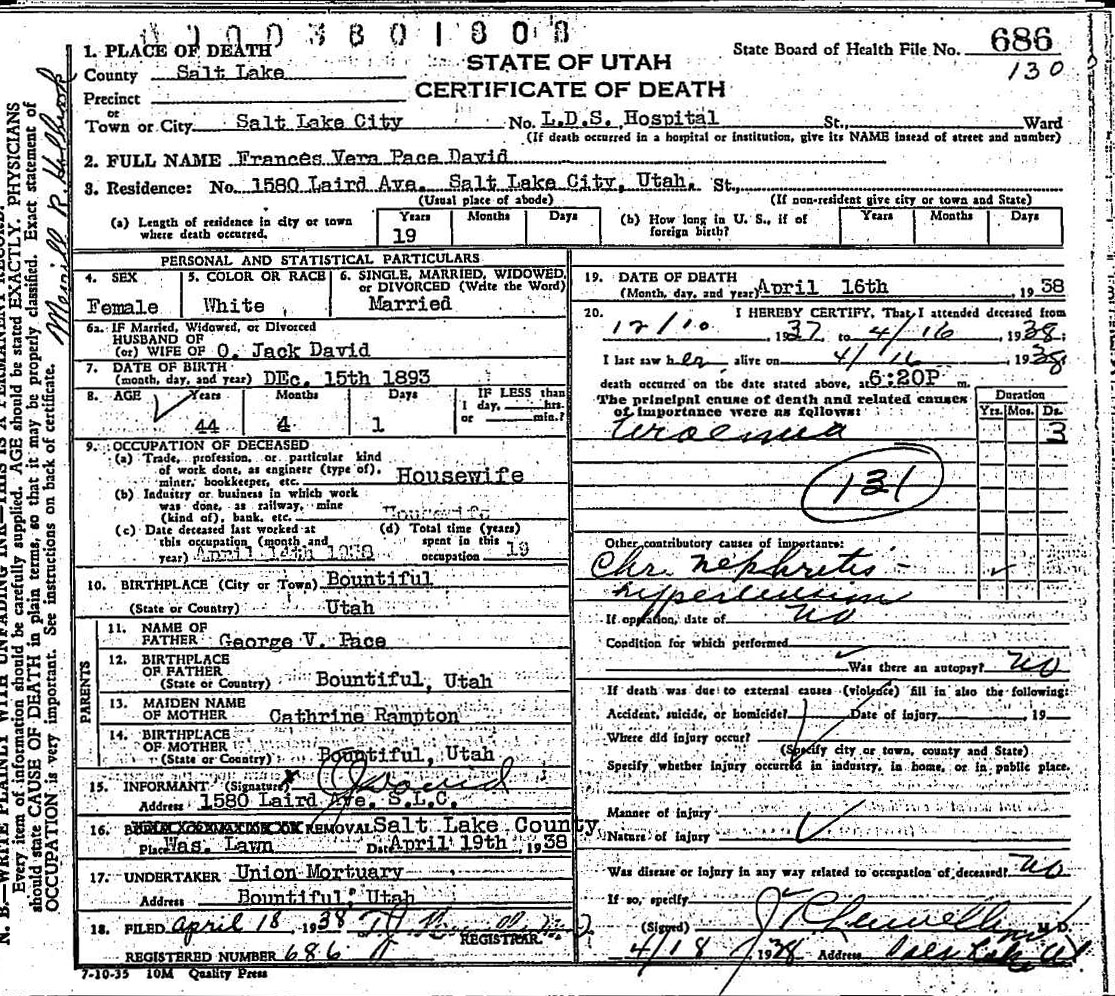 0 0 0 3 8 0 1 8 0 8
1. PLACE OF DEATH
County Salt Lake
Precinct
or
Town or City Salt Lake City
STATE OF UTAH
CERTIFICATE OF DEATH
State Board of Health File No. 686
130
No. L.D.S. Hospital St., Ward
(If death occurred in a hospital or institution, give its NAME instead of street and number)
2. FULL NAME Frances Vera Pace David
3. Residence: No. 1580 Laird Ave. Salt Lake City, Utah. St.,
(Usual place of abode) (If non-resident give city or town and State)
(a) Length of residence in city or town where death occurred. Years 19 Months Days
(b) How long in U. S., if of foreign birth? Years Months Days
PERSONAL AND STATISTICAL PARTICULARS
4. SEX Female
5. COLOR OR RACE White
6. SINGLE, MARRIED, WIDOWED, or DIVORCED (Write the Word) Married
6a. IF Married, Widowed, or Divorced
HUSBAND OF
(or) WIFE OF O. Jack David
7. DATE OF BIRTH
(month, day, and year) DEc. 15th 1893
8. AGE Years 44 Months 4 Days 1
IF LESS than 1 day, hrs. or min.?
9. OCCUPATION OF DECEASED
(a) Trade, profession, or particular kind
of work done, as engineer (type of),
miner, bookkeeper, etc. Housewife
(b) Industry or business in which work
was done, as railway, mine
(kind of), bank, etc. Housewife
(c) Date deceased last worked at
this occupation (month and
year) April 14th 1938
(d) Total time (years)
spent in this
occupation 19
10. BIRTHPLACE (City or Town) Bountiful
(State or Country) Utah
PARENTS
11. NAME OF
FATHER George V. Pace
12. BIRTHPLACE
OF FATHER
(State or Country) Bountiful, Utah
13. MAIDEN NAME
OF MOTHER Cathrine Rampton
14. BIRTHPLACE
OF MOTHER
(State or Country) Bountiful, Utah
15. INFORMANT (Signature) x OJ David
Address 1580 Laird Ave. S.L.C.
16. REMOVAL Salt Lake County
Place Was. Lawn Date April 19th, 1938
17. UNDERTAKER Union Mortuary
Address Bountiful, Utah
18. FILED April 18 1938
REGISTRAR.
REGISTERED NUMBER 686
7-10-35 10M Quality Press
19. DATE OF DEATH
(Month, day, and year) April 16th, 1938
20. I HEREBY CERTIFY, That I attended deceased from
12/10, 1937 to 4/16, 1938,
I last saw her alive on 4/16, 1938,
death occurred on the date stated above, at 6:20P m.
The principal cause of death and related causes
of importance were as follows:
Duration
Yrs. Mos. Ds.
Uroemia 3
131
Other contributory causes of importance:
Chr. Nephritis -
hypertension
If operation, date of No
Condition for which performed
Was there an autopsy? No
If death was due to external causes (violence) fill in also the following:
Accident, suicide, or homicide? Date of injury, 19
Where did injury occur?
(Specify city or town, county and State)
Specify whether injury occurred in industry, in home, or in public place.
Manner of injury
Nature of injury
Was disease or injury in any way related to occupation of deceased? No
If so, specify
(Signed) M. D.
4/18 1938 Address Salt Lake
N. B.—WRITE PLAINLY WITH UNFADING INK—THIS IS A PERMANENT RECORD.
Every item of information should be carefully supplied. AGE should be stated EXACTLY. PHYSICIANS
should state CAUSE OF DEATH in plain terms, so that it may be properly classified. Exact statement of
OCCUPATION is very important. See instructions on back of certificate.
Merrill R.